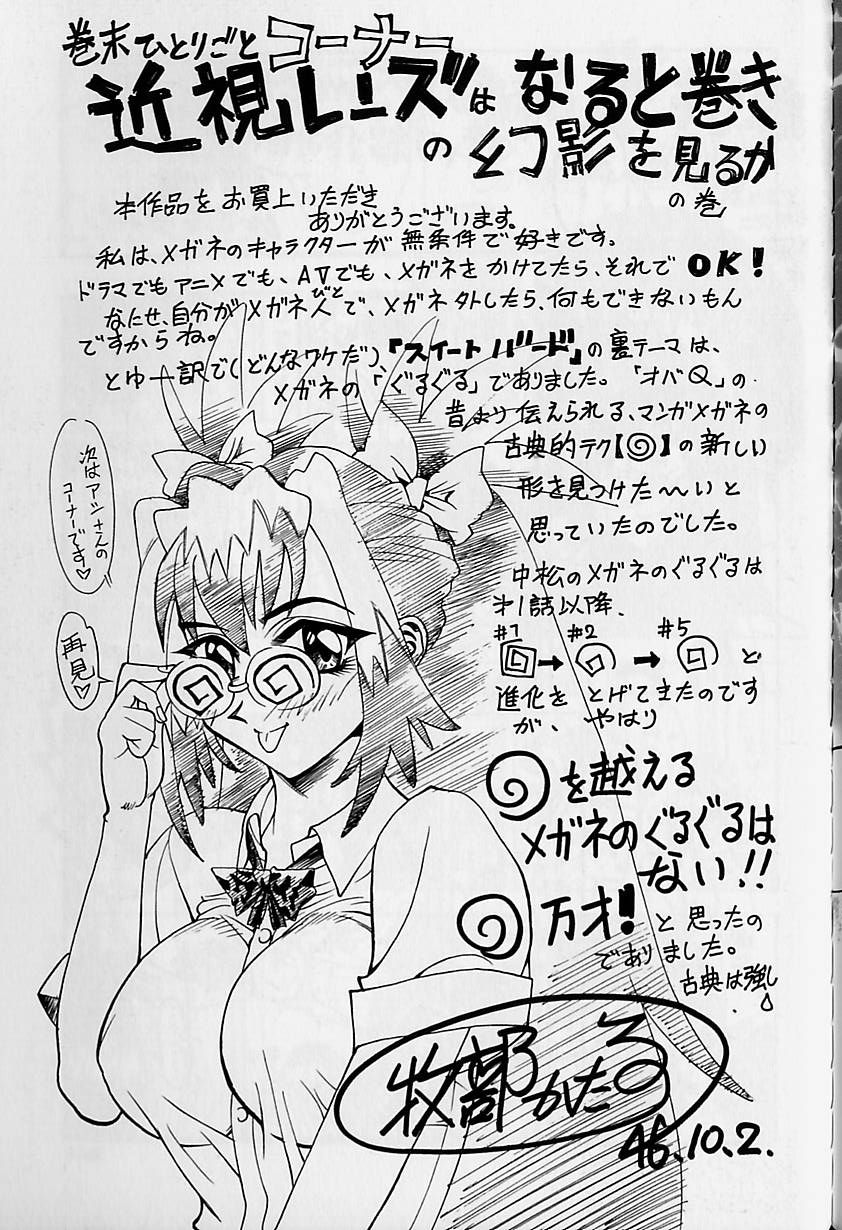 巻末ひとりごとコーナー
近視レンズはなると巻き
の幻影を見るか
の巻
本作品をお買上いただき
ありがとうございます。
私は、メガネのキャラクターが無条件で好きです。
ドラマでもアニメでも、AVでも、メガネをかけてたら、それでOK!
なたせ、自分がメガネ人びとで、メガネ外したら、何もできないもん
ですからね。
とゆー訳で(どんなワケだ)、『スイートバード』の裏テーマは、
メガネの「ぐるぐる」でありました。「オバQ」の
昔より伝えられる、マンガメガネの
古典的テク【🌀】の新しい
形を見つけた〜いと
思っていたのでした。
中松のメガネのぐるぐるは
才1話以降、
#1 → #2 → #5 と
進化をとげてきたのです
が、やはり
🌀を越える
メガネのぐるぐるは
ない!!
🌀万才!と思ったの
でありました。
古典は強し
次はアシさんの
コーナーです♡
再見♡
牧部かたる
'96.10.2.